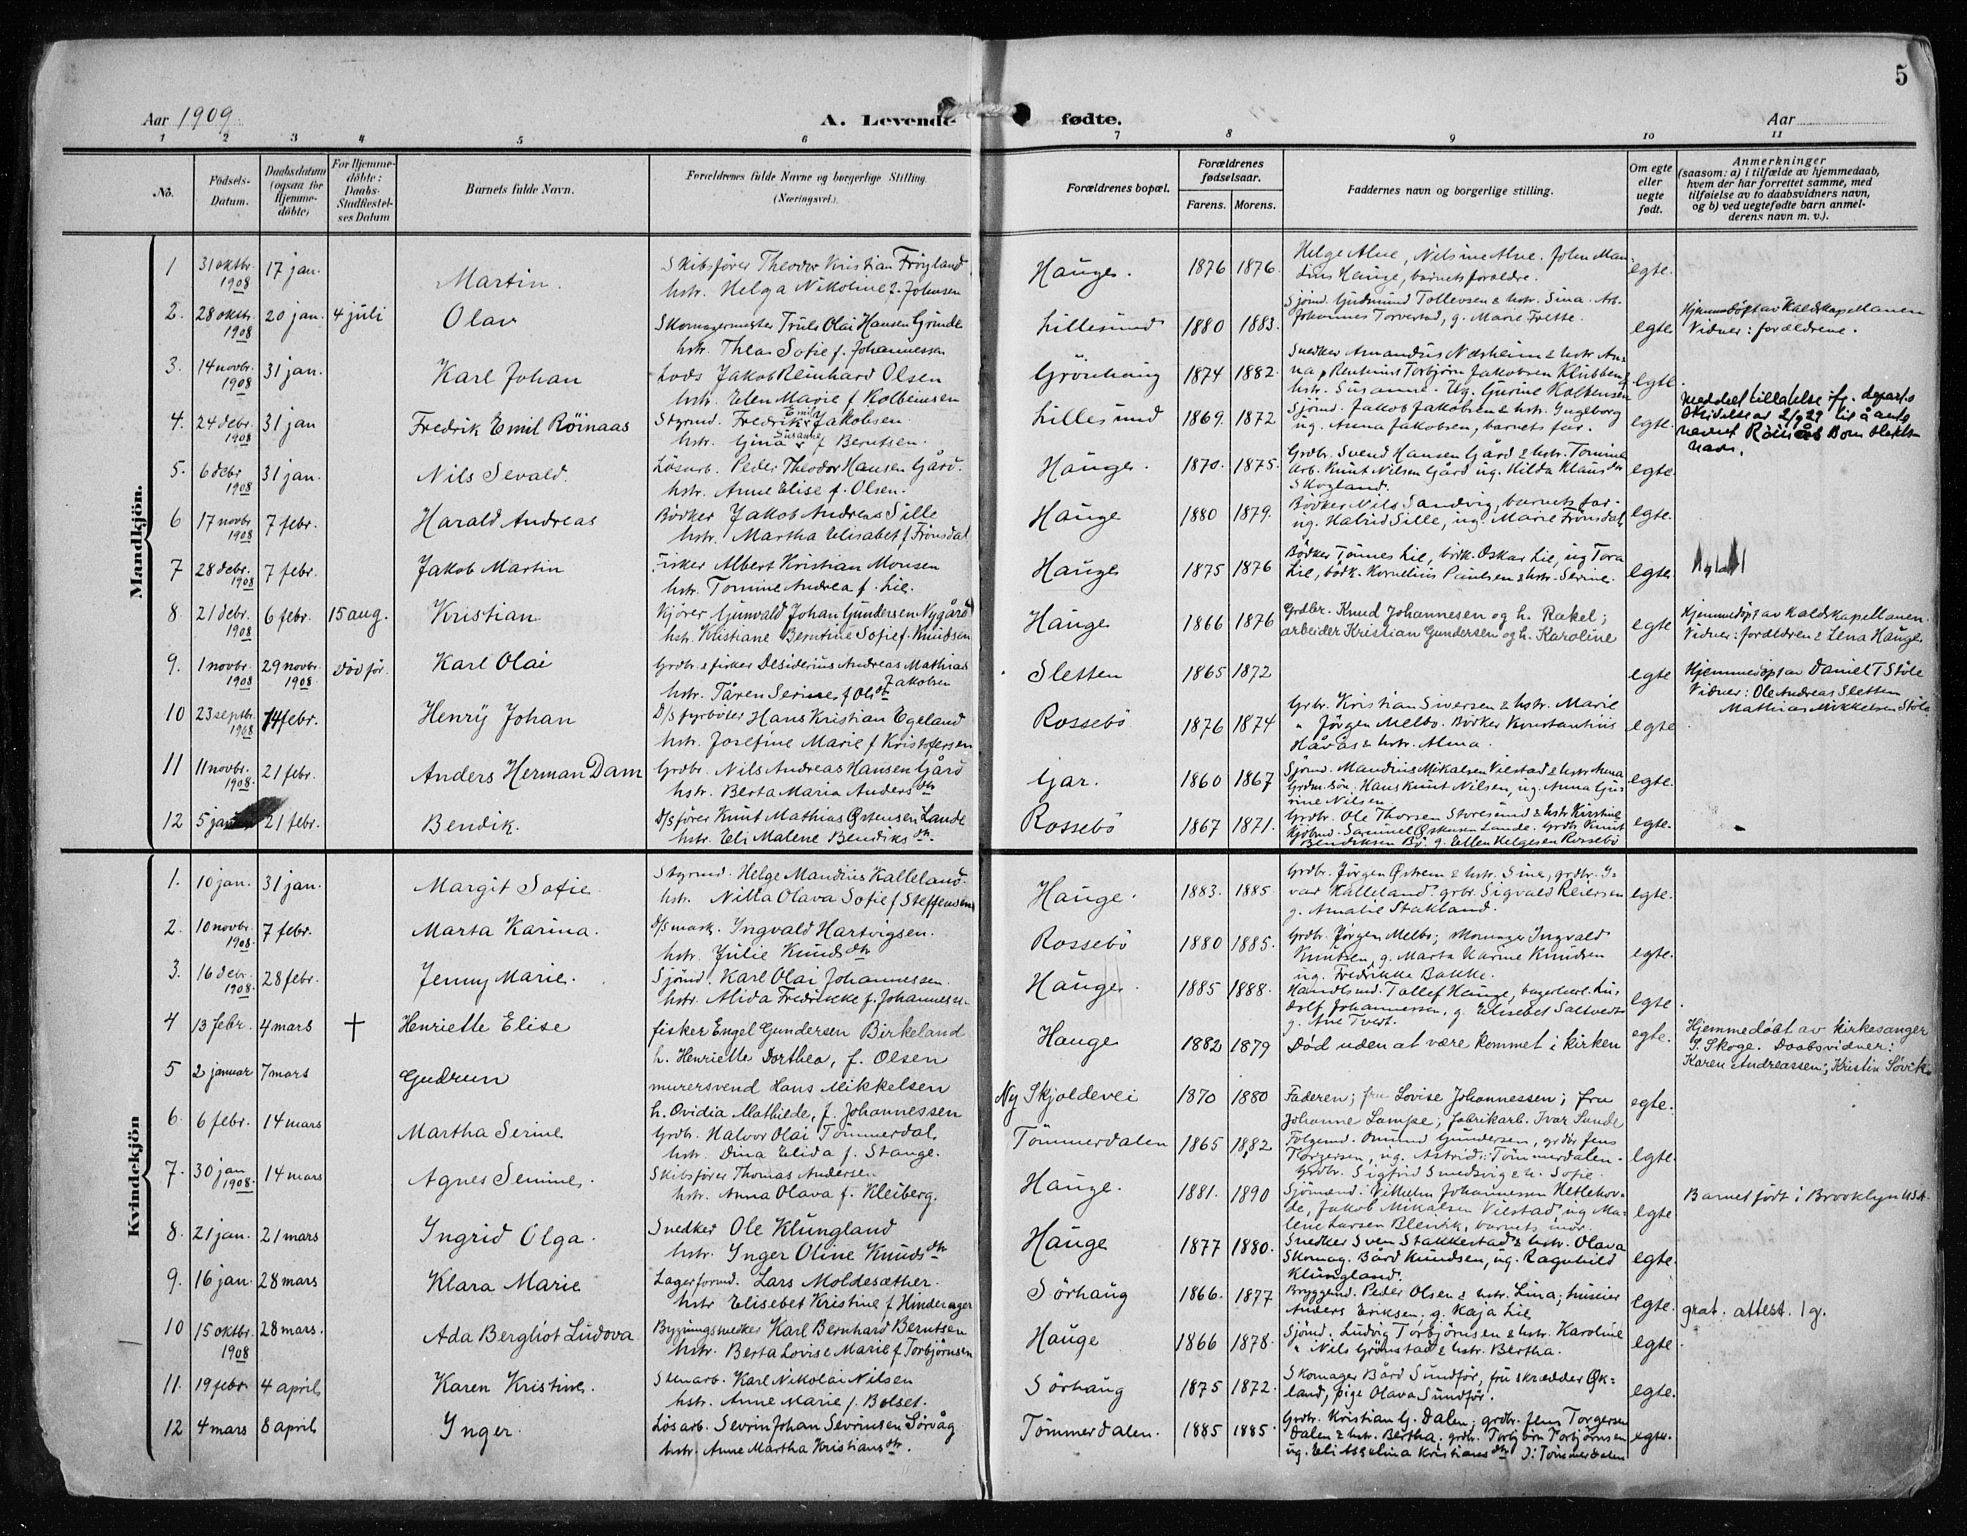 5
Aar 1909
A. Levende fødte.
Aar
1 2 3 4 5 6 7 8 9 10 11
No.
Födsels-Datum.
Daabsdatum (ogsaa for Hjemmedöbte)
For Hjemmedöbte: Daabs-Stadfæstelses Datum
Barnets fulde Navn.
Forældrenes fulde Navne og borgerlige Stilling. (Næringsvei.)
Forældrenes bopæl.
Forældrenes fødselsaar.
Farens. Morens.
Faddernes navn og borgerlige stilling.
Om egte eller uegte født.
Anmerkninger
(saasom: a) i tilfælde av hjemmedaab,
hvem der har forrettet samme, med
tilføielse av to daabsvidners navn,
og b) ved uegtefødte barn anmel-
derens navn m. v.).
Mandkjön.
1 31 oktbr. 1908 17 jan. Martin.
Skibsfører Theodor Kristian Frøyland
hstr. Helga Nikoline f. Johnsen
Hauge. 1876 1876.
Helge Alne, Nilsine Alne. John Man-
dius Hauge, barnets forældre.
egte.
2. 28 oktr. 1908 20 jan. 4 juli Olav
Skomagermester Truls Olai Hansen Grinde
hstr. Thea Sofie f. Johannessen
Lillesund 1880 1883.
Sjømd. Gudmund Tollevsen & hstr. Sina. Arb.
Johannes Torvestad, g. Marie Frette.
egte.
Hjemmedøpt av Kaldskapellanen
Vidner: forældrene.
3. 14 novbr. 1908 31 jan. Karl Johan
Lods Jakob Reinhard Olsen
hstr. Elen Marie f. Kolbeinsen
Grönhaug 1874 1882.
Snedker Amandus Næsheim & hstr. An-
na, Rentenius Torbjørn Jakobsen Klubben &
hstr. Susanne. Ug. Gurine Kolbensen
egte.
4. 24 debr. 1908 31 jan Fredrik Emil Röinaas
Styrmd. Fredrik Emil Jakobsen.
hstr. Gina Susanne f. Berntsen.
Lillesund 1869. 1872
Sjömd. Jakob Jakobsen & hstr. Ingeborg
ug. Anna Jakobsen, barnets far.
egte.
meddelt tillatelse ifg. departs
skrivelse av 2/9 29 til å anta
navnet Röinås som slekts-
navn.
5. 6 debr 1908 31 jan. Nils Sevald.
Lösarb. Peder Theodor Hansen Gård.
hstr. Anne Elise f. Olsen.
Hauge. 1870. 1875.
Grdbr. Svend Hansen Gård & hstr. Tomine
arb. Knut Nilsen Gård ug. Hilda Klausdr
Skogland.
egte.
6 17 novbr 1908 7 febr. Harald Andreas
Bödker Jakob Andreas Sille
hstr. Martha Elisabet f. Frönsdal
Hauge 1880 1879.
Bödker Nils Sandvig, barnets far.
ug. Halrid Sille, ug. Marie Frönsdal
egte.
7 28 debr. 1908 7 febr. Jakob Martin
Fisker Albert Kristian Monsen
hstr. Tomine Andrea f. Lie.
Hauge 1875 1876
Bödker Tönnes Lie, bödk. Oskar Lie, ug Tora
Lie, bödk. Kornelius Paulsen & hstr. Serine.
egte.
8 21 debr. 1908 6 febr. 15 aug. Kristian
Kjörer Gunvald Johan Gundersen Nygård
hstr. Kristiane Berntine Sofie f. Knudsen
Hauge 1866 1876
Grdbr. Knud Johannesen og h. Rakel;
arbeider Kristian Gundersen og h. Karoline
egte
Hjemmedøpt av Kaldskapellanen.
Vidner: forældren & Lena Hauge
9. 1 novbr. 1908 29 novbr. 1908 död før. Karl Olai
Grdbr. & fisker Desiderius Andreas Mathias Jakobsen
hstr. Tåren Serine f. Olsdtr
Sletten 1865 1872
egte
Hjemmedöpt av Daniel T Stöle
Vidner: Ole Andreas Sletten
Mathias Mikkelsen Stöle
10 23 septbr. 1908 14 febr. Henrÿ Johan
D/S fyrböter Hans Kristian Egeland
hstr. Josefine Marie f Kristofersen
Rossebö 1876 1874
Grbr. Kristian Siversen & hstr. Marie
" Jörgen Melbo. Bödker Konstantius
Håvås & hstr. Alma.
egte.
11 11 novbr. 1908. 21 febr. Anders Herman Dam
Grdbr. Nils Andreas Hansen Gård
hstr. Berta Maria Andersdtr
Gar. 1860 1867
Sjömd. Mandius Mikalsen Vilstad & hstr. Anna
Grdm. sön. Hans Knut Nilsen, ug. Anna Gu-
rine Nilsen
egte.
12 5 jan 21 febr. Bendik.
D/S förer Knut Mathias Östensen Lande
hstr. Eli Malene Bendiksdtr.
Rossebö 1867 1871.
Grdbr. Ole Thorsen Storesund & hstr Kirstine
Kjöbmd. Samuel Östensen Lande. Grdbr. Knut
Bendiksen Bö. g. Ellen Helgesen Rossebö
egte.
Kvindekjön
1. 10 jan. 31 jan. Margit Sofie.
Styrmd. Helge Mandius Kalleland.
hstr. Nilla Olava Sofie f Steffensen
Hauge. 1883. 1885.
Grdbr. Jörgen Östrem & hstr. Sine, grdbr. I-
var Kalleland. grbr. Sigvald Reiersen
g. Amalie Stakland.
egte.
2. 10 novbr. 1908. 7 febr. Marta Karina.
D/S mask. Ingvald Hartvigsen.
hstr. Julie Knudsdtr
Rossebö 1880 1885.
Grdbr. Jörgen Melbo; skomager Ingvald
Knutsen, g. Marta Karine Knudsen
ug. Fredrikke Bakke.
egte.
3. 16 debr. 1908. 28 febr. Jenny Marie.
Sjömd. Karl Olai Johannessen.
hstr. Alida Fredrikke f. Johannesen.
Hauge. 1885 1888.
Handlsmd. Tollef Hauge, bagersvd. Lu-
dolf Johannessen, g. Elisebet Saltvedt
g. Ane Tvedt.
egte.
4 13 febr. 4 mars † Henriette Elise
fisker Engel Gundersen Birkeland
h. Henriette Dorthea, f. Olsen
Hauge 1882 1879
Död uden at være kommet i kirken
egte.
Hjemmedöbt av kirkesanger
S. Skoge. Daabsvidner:
Karen Andreassen; Kristin Sövik.
5 2 januar 7 mars Gudrun
murersvend Hans Mikkelsen
h. Ovidia Mathilde, f. Johannessen
Ny Skjoldevei 1870 1880
Faderen; fru Lovise Johannessen; fru
Johanne Lampe; fabrikarb. Ivar Sande
egte.
6. 6 febr. 14 mars Martha Serine
Grdbr. Halvor Olai Tömmerdal,
hstr. Dina Elida f. Stange.
Tömmerdalen 1865 1882
Folgemd. Omund Gundersen, grdbr. Jens
Torgersen, ug. Astrid: Tömmerdalen.
egte.
7. 30 jan 1908. 14 mars Agnes Semine.
Skibsförer Thomas Andersen
hstr. Anna Olava f. Kleiberg.
Hauge. 1881. 1890
Grdbr. Sigfrid Smedsvig & h. Sofie
Sjömænd: Vilhelm Johannesen Hetlehov-
de, Jakob Mikalsen Vilstad, ug Ma-
lene Larsen Bleivik, barnets mor.
egte
Barnet födt i Brooklyn U.S.A.
8. 21 jan. 21 mars Ingrid Olga.
Snedker Ole Klungland
hstr. Inger Oline Knudsdtr
Hauge 1877 1880.
Snedker Sven Stakkestad & hstr. Olava
Skomag. Bård Knudsen, ug. Ragnhild
Klungland.
egte.
9. 16 jan. 28 mars. Klara Marie
Lagerformd. Lars Moldesæther.
hstr Elisebet Kristine f Hinderager
Sörhaug 1866. 1877
Bryggemd. Peder Olsen & hstr. Lina; huseier
Anders Eriksen; g. Kaja Lie
egte.
grat. attest. 1 g.
10 15 oktbr. 1908 28 mars. Ada Bergliot Ludova
Bygningssnedker Karl Bernhard Berntsen
hstr. Berta Lovise Marie f Torbjörnsen
Hauge 1866 1878.
Sjömd. Ludvig Torbjörnsen & hstr. Karoline
" Nils Grönstad & hstr. Bertha.
egte.
11. 19 febr 4 april Karen Kristine.
Stenarb. Karl Nikolai Nilsen
hstr. Anne Marie f. Bolset.
Sörhaug 1875 1872.
Skomager Bård Sundför, fru skrædder Øk-
land, pige Olava Sundför.
egte.
12 4 mars 8 april Inger.
Lösarb. Sevrin Johan Sevrinsen Sörvåg
hstr. Anne Martha Kristiansdtr.
Tömmerdalen. 1885 1885.
Grdbr. Kristian G. Dalen; grdbr. Jens Torgersen
Dalen & hstr. Bertha. grdbr. Torbjörn Torbjörnsen
ug. Eli Asselina Kristiansdtr J: Tömmerdalen
egte.